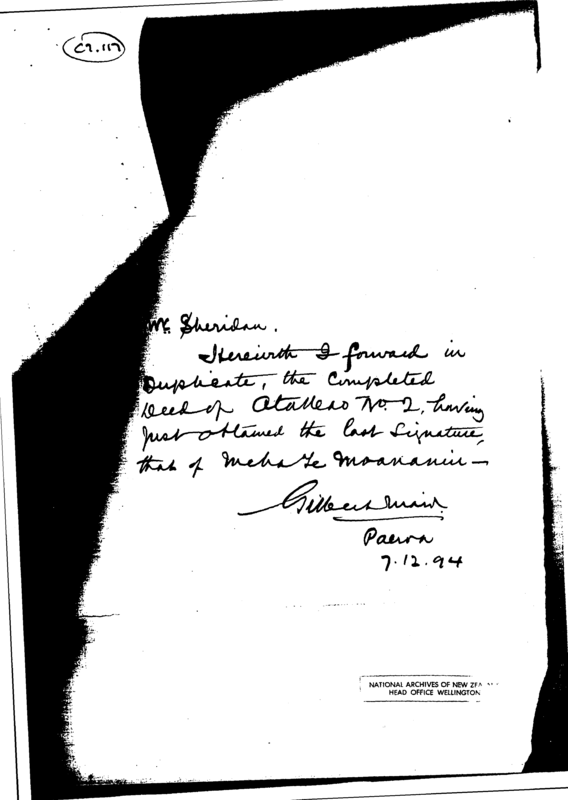 C7.117
Mr. Sheridan.
Herewith I forward in
Duplicate, the Completed
Deed of No. 2, having
Just obtained the last Signature,
that of Meha Te Moananui —
Gilbert Mair.
Paeroa
7.12.94
NATIONAL ARCHIVES OF NEW ZEA
HEAD OFFICE WELLINGTON